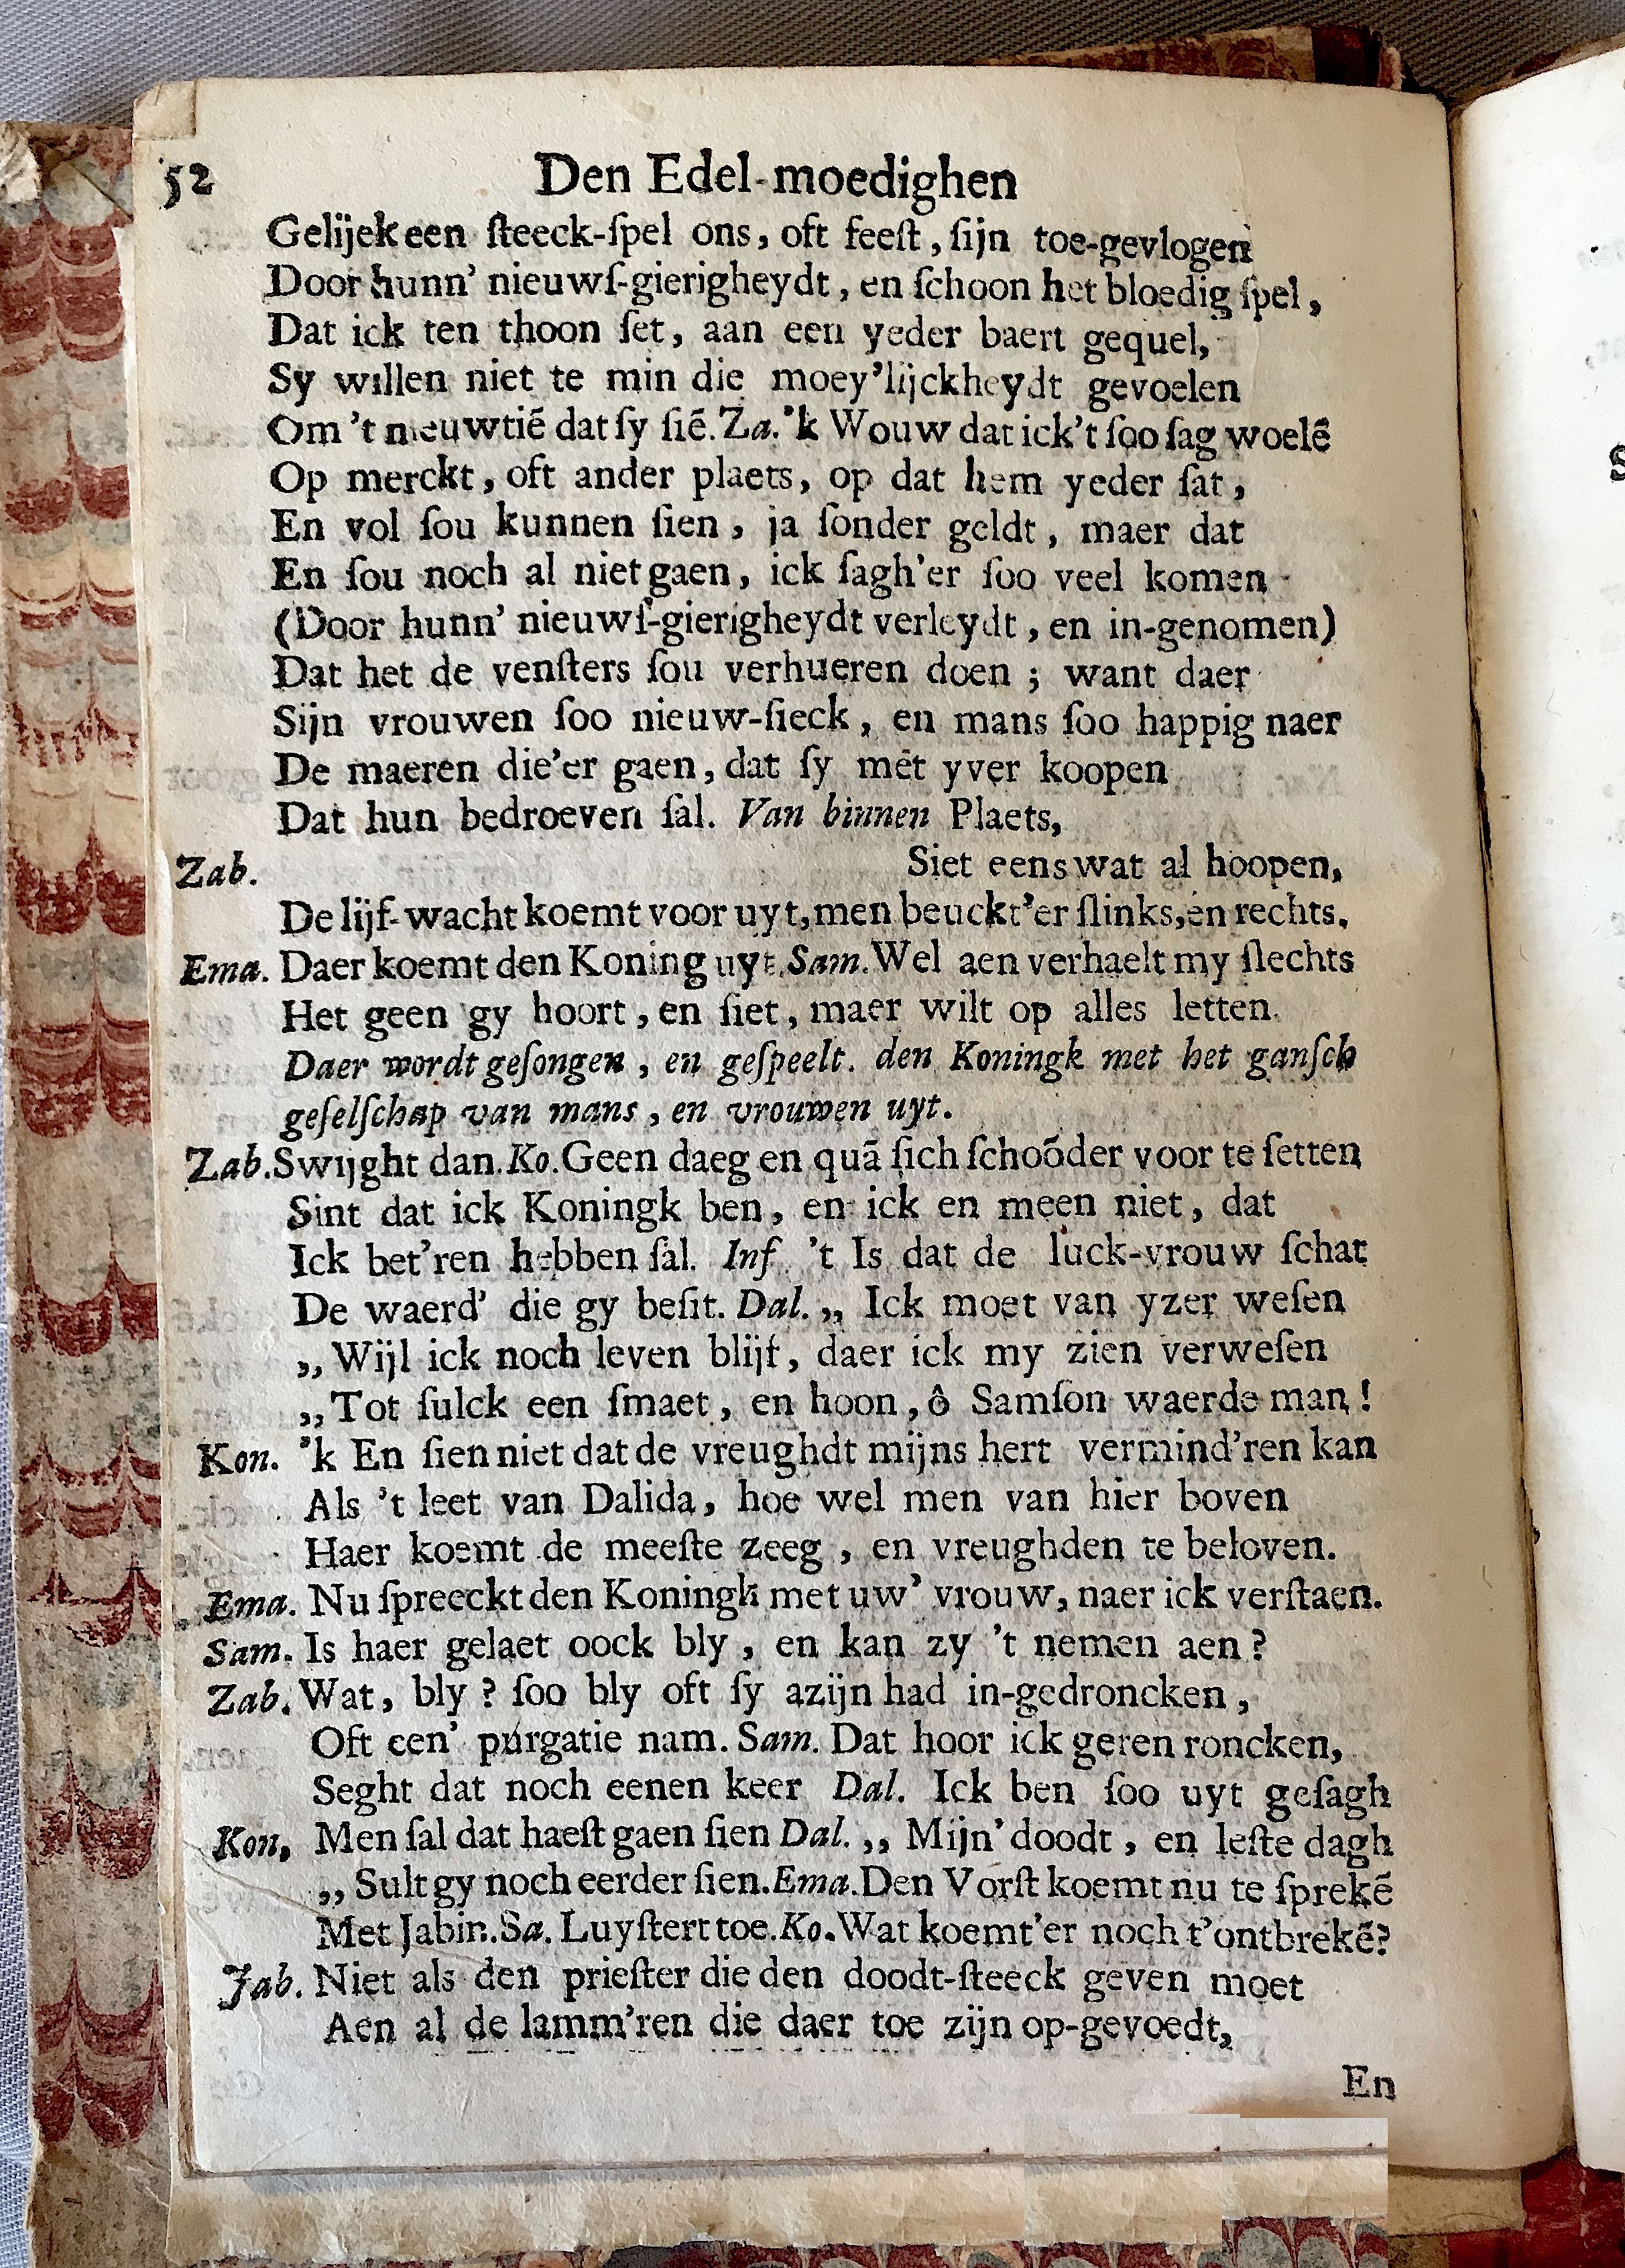 52 Den Edel-moedighen
Gelijck een ſteeck-ſpel ons, oft feeſt, ſijn toe-gevlogen
Door hunn' nieuwſ-gierigheydt, en ſchoon het bloedig ſpel,
Dat ick ten thoon ſet, aan een yeder baert gequel,
Sy willen niet te min die moey'lijckheydt gevoelen
Om 't nieuwtiẽ dat ſy ſiẽ. Za. 'k Wouw dat ick't ſoo ſag woelẽ
Op merckt, oft ander plaets, op dat hem yeder ſat,
En vol ſou kunnen ſien, ja ſonder geldt, maer dat
En ſou noch al niet gaen, ick ſagh'er ſoo veel komen
(Door hunn' nieuwſ-gierigheydt verleydt, en in-genomen)
Dat het de venſters ſou verhueren doen; want daer
Sijn vrouwen ſoo nieuw-ſieck, en mans ſoo happig naer
De maeren die'er gaen, dat ſy met yver koopen
Dat hun bedroeven ſal. Van binnen Plaets,
Zab. Siet eens wat al hoopen,
De lijf-wacht koemt voor uyt, men beuckt'er ſlinks, en rechts.
Ema. Daer koemt den Koning uyt. Sam. Wel aen verhaelt my ſlechts
Het geen gy hoort, en ſiet, maer wilt op alles letten.
Daer wordt geſongen, en geſpeelt. den Koningk met het ganſch
geſelſchap van mans, en vrouwen uyt.
Zab. Swijght dan. Ko. Geen daeg en quã ſich ſchoõder voor te ſetten
Sint dat ick Koningk ben, en ick en meen niet, dat
Ick bet'ren hebben ſal. Inf. 't Is dat de luck-vrouw ſchat
De waerd' die gy beſit. Dal. „ Ick moet van yzer weſen
„ Wijl ick noch leven blijf, daer ick my zien verweſen
„ Tot ſulck een ſmaet, en hoon, ô Samſon waerde man!
Kon. 'k En ſien niet dat de vreughdt mijns hert vermind'ren kan
Als 't leet van Dalida, hoe wel men van hier boven
Haer koemt de meeſte zeeg, en vreughden te beloven.
Ema. Nu ſpreeckt den Koningk met uw' vrouw, naer ick verſtaen.
Sam. Is haer gelaet oock bly, en kan zy 't nemen aen?
Zab. Wat, bly? ſoo bly oft ſy azijn had in-gedroncken,
Oft een' purgatie nam. Sam. Dat hoor ick geren roncken,
Seght dat noch eenen keer Dal. Ick ben ſoo uyt geſagh
Kon. Men ſal dat haeſt gaen ſien Dal. „ Mijn' doodt, en leſte dagh
„ Sult gy noch eerder ſien. Ema. Den Vorſt koemt nu te ſprekẽ
Met Jabin. Sa. Luyſtert toe. Ko. Wat koemt'er noch t'ontbrekẽ?
Jab. Niet als den prieſter die den doodt-ſteeck geven moet
Aen al de lamm'ren die daer toe zijn op-gevoedt,
En